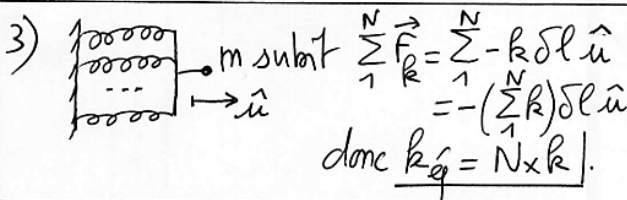 3) m subit $\sum_{1}^{N} \vec{F}_k = \sum_{1}^{N} -k \delta l \hat{u}$
--- $\hat{u}$ $= -(\sum_{1}^{N} k) \delta l \hat{u}$
donc $k_{éq} = N \times k$.